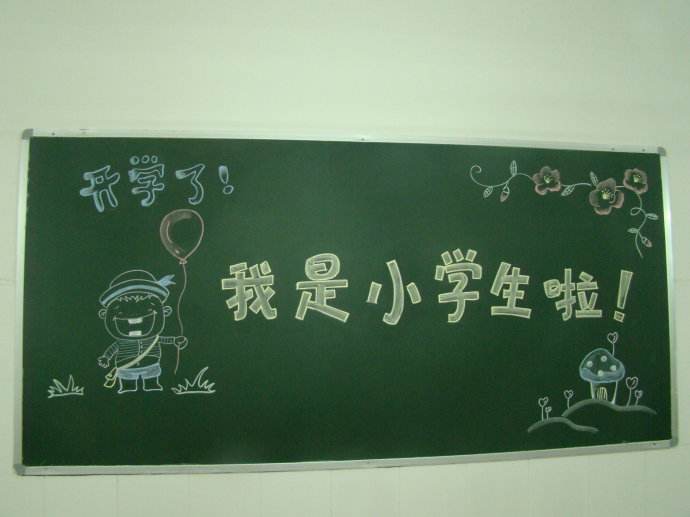 开学了!
我是小学生啦!